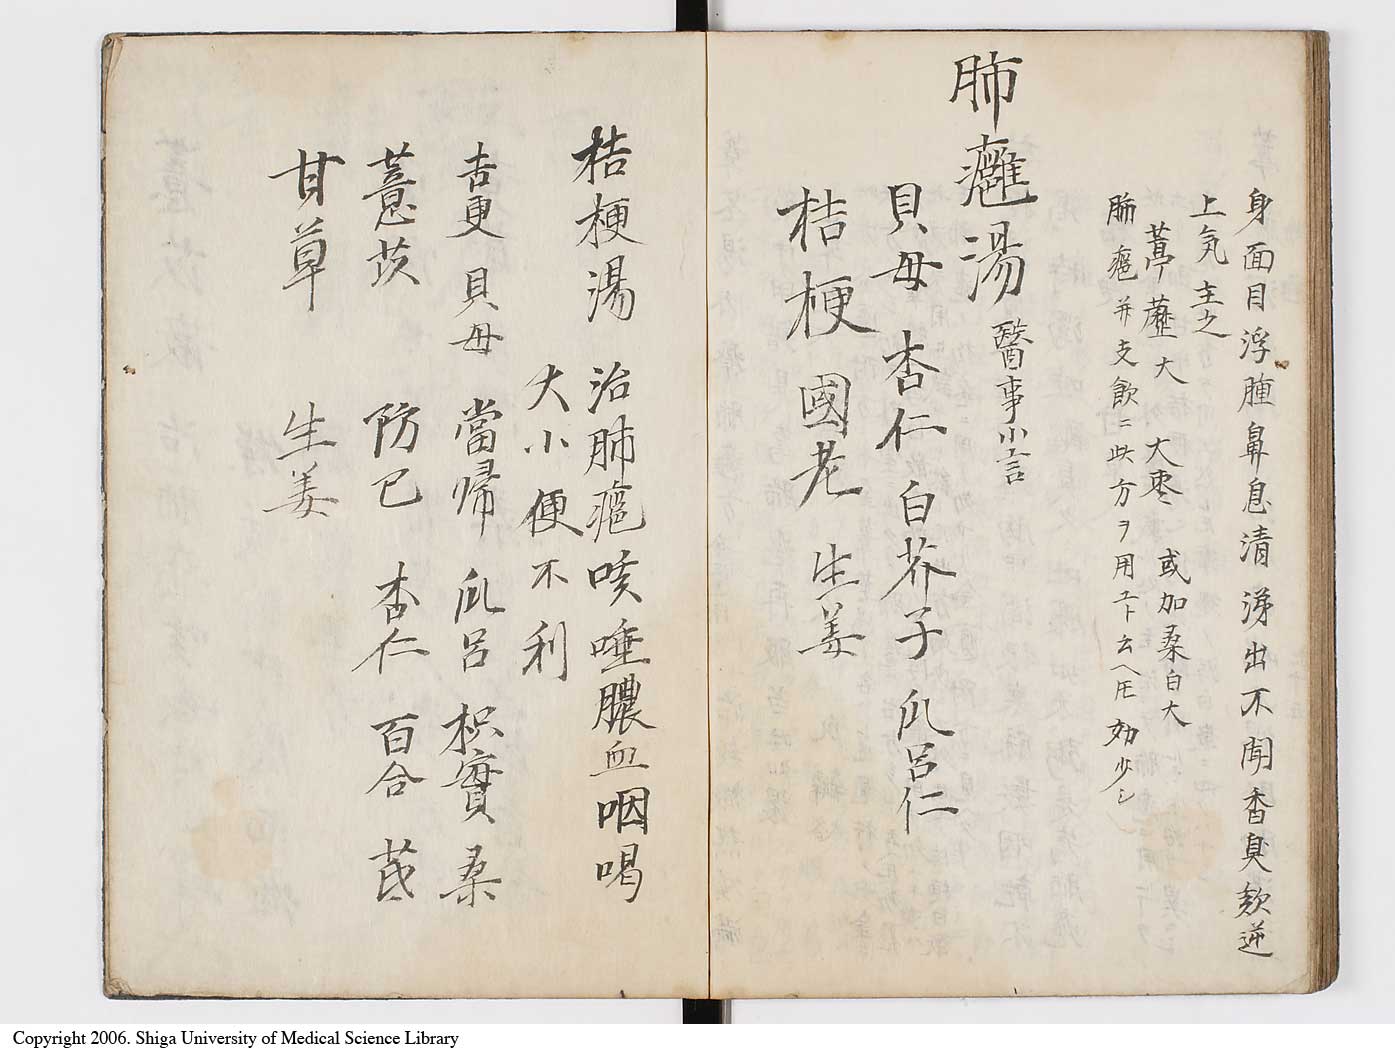 身面目浮腫鼻息清涕出不聞香臭欬逆
上気主之
葶藶大 大棗 或加桑白大
肺癰并支飲ニ此方ヲ用ユト云ヘ𪜈効少シ
肺癰湯 醫事小言
貝母 杏仁 白芥子 瓜呂仁
桔梗 國老 生姜
桔梗湯 治肺癰咳唾膿血咽喝
大小便不利
吉更 貝母 當帰 瓜呂 枳實 桑
薏苡 防已 杏仁 百合 芪
甘草 生姜
Copyright 2006. Shiga University of Medical Science Library